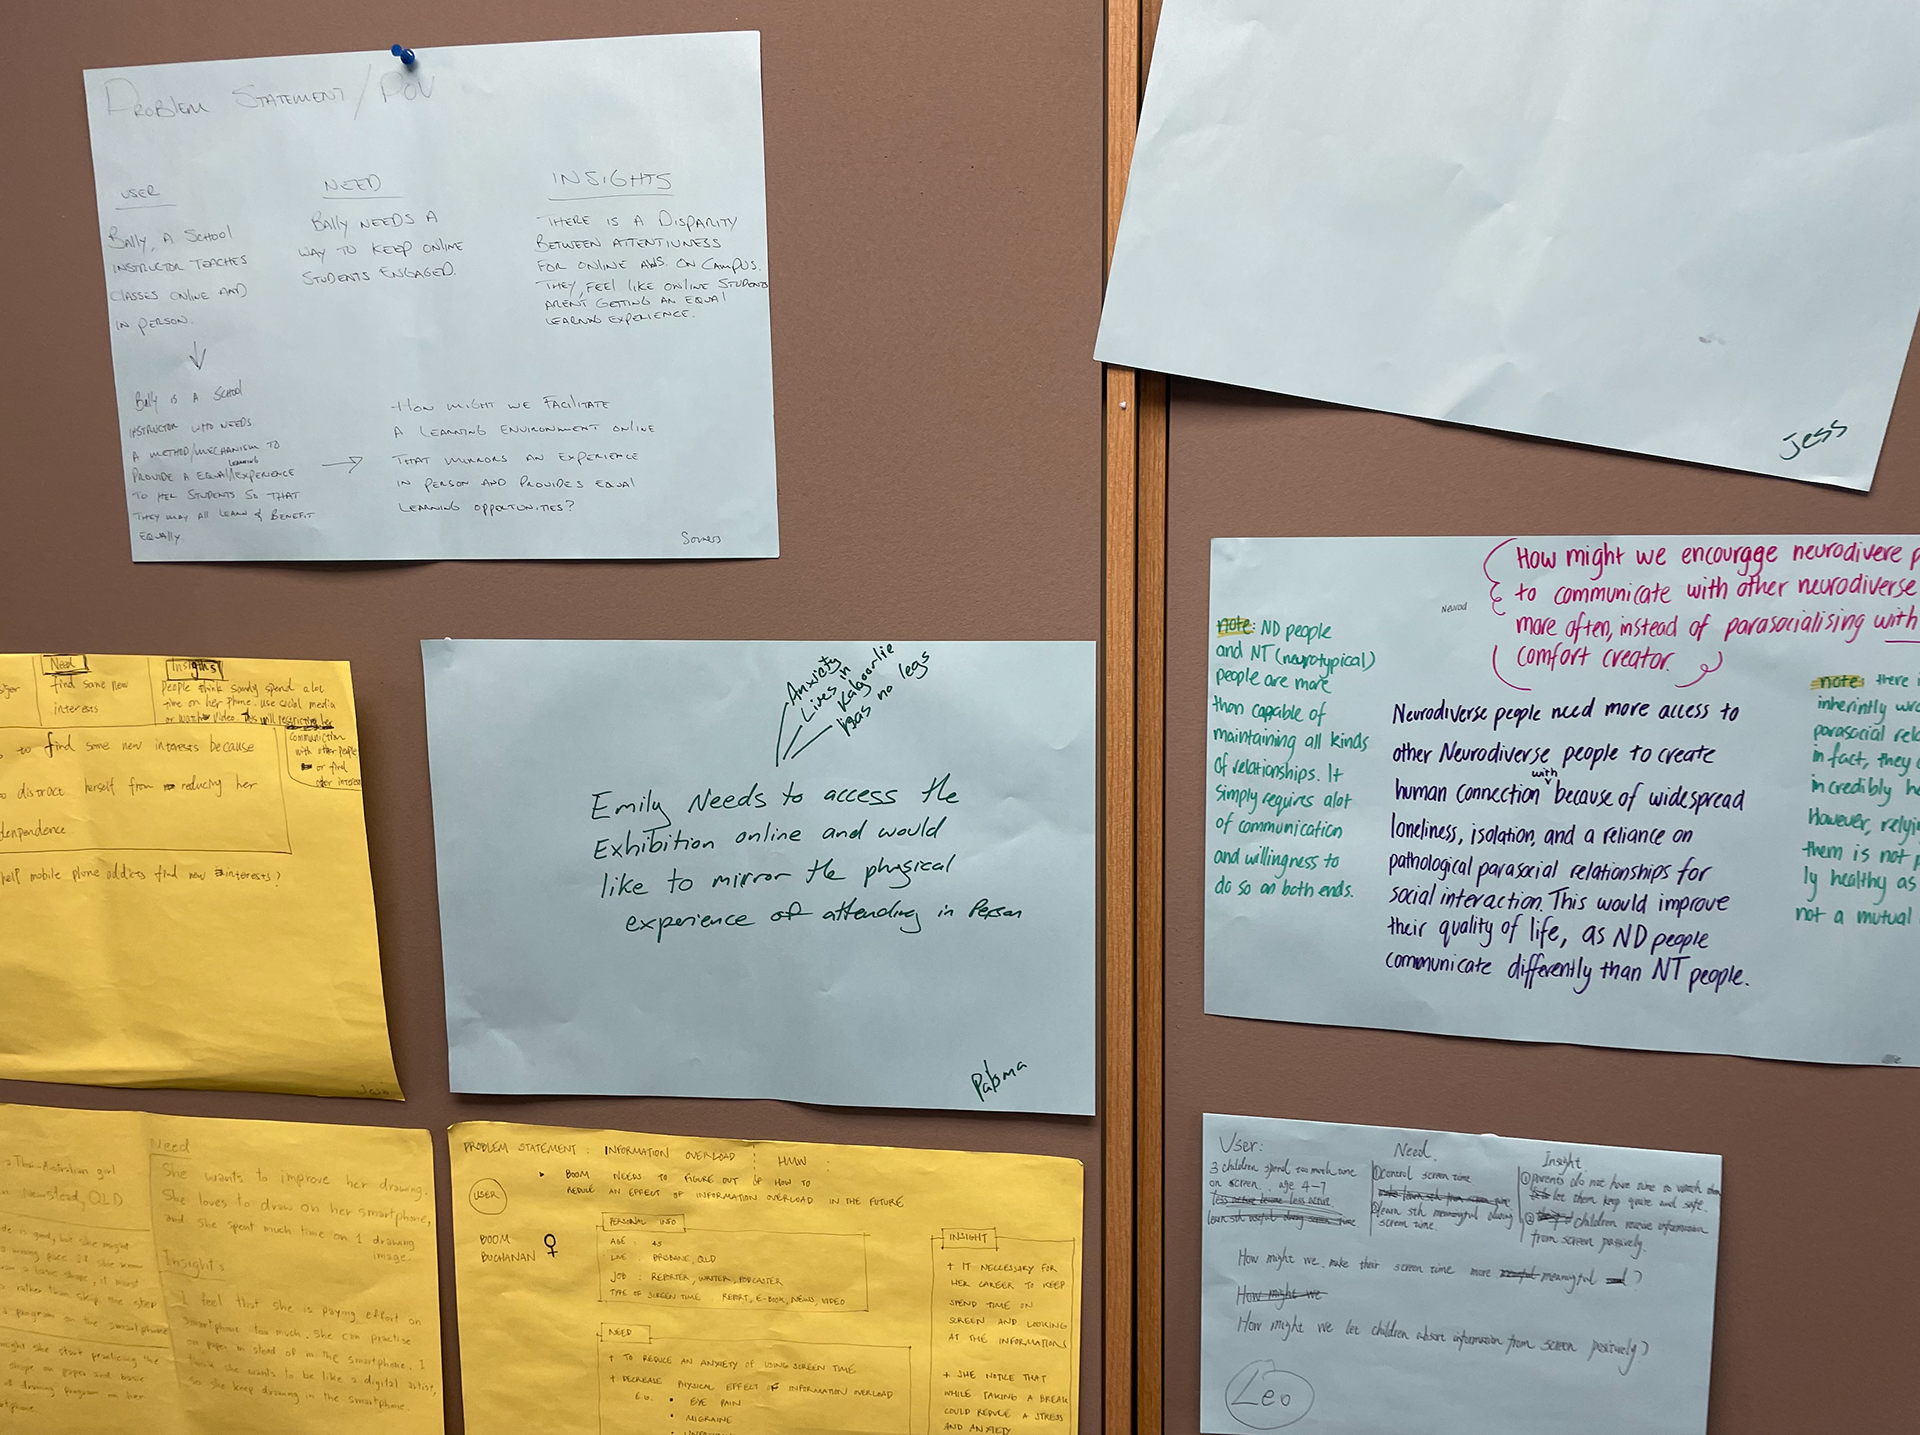 PROBLEM STATEMENT / POV
USER
BALLY, A SCHOOL
INSTRUCTOR TEACHES
CLASSES ONLINE AND
IN PERSON.
NEED
BALLY NEEDS A
WAY TO KEEP ONLINE
STUDENTS ENGAGED.
INSIGHTS
THERE IS A DISPARITY
BETWEEN ATTENTIVNESS
FOR ONLINE AWS. ON CAMPUS.
THEY, FEEL LIKE ONLINE STUDENTS
ARENT GETTING AN EQUAL
LEARNING EXPERIENCE.
BALLY IS A SCHOOL
INSTRUCTOR WHO NEEDS
A METHOD/MECHANISM TO
LEARNING
PROVIDE A EQUAL/EXPERIENCE
TO HER STUDENTS SO THAT
THEY MAY ALL LEARN & BENEFIT
EQUALLY.
HOW MIGHT WE FACILITATE
A LEARNING ENVIRONMENT ONLINE
THAT MIRRORS AN EXPERIENCE
IN PERSON AND PROVIDES EQUAL
LEARNING OPPORTUNITIES?
Jess
Need
find some new
interests
Insigths
people think Sandy spend a lot
time on her phone. use social media
or watch video. This will restricting her
communication
with other people
or find
other interest
to find some new interests because
distract herself from reducing her
denpendence
help mobile phone addicts find new interests?
Anxiety
Lives in
Kalgoorlie
has no legs
Emily Needs to access the
Exhibition online and would
like to mirror the physical
experience of attending in Person
Paloma
How might we encourage neurodivere p
to communicate with other neurodiverse
more often, instead of parasocialising with
comfort creator.
Neurod
note: ND people
and NT (neurotypical)
people are more
than capable of
maintaining all kinds
of relationships. It
simply requires alot
of communication
and willingness to
do so on both ends.
Neurodiverse people need more access to
other Neurodiverse people to create
with
human connection because of widespread
loneliness, isolation, and a reliance on
pathological parasocial relationships for
social interaction. This would improve
their quality of life, as ND people
communicate differently than NT people.
note: there i
inherintly wro
parasocial rela
in fact, they c
incredibly he
However, relyin
them is not p
ly healthy as
not a mutual
a Thai-Australian girl
Newstead, QLD
Need
She wants to improve her drawing.
She loves to draw on her smartphone,
and she spent much time on 1 drawing
image.
Insights
I feel that she is paying effort on
smartphone too much. She can practise
on paper in stead of on the smartphone. I
think she wants to be like a digital artist,
so she keep drawing in the smartphone.
is good, but she might
rather than skip the step
program on the smartphone
might she start practicing the
shape on paper and basic
drawing program on her
PROBLEM STATEMENT : INFORMATION OVERLOAD
HMW :
BOOM NEEDS TO FIGURE OUT OF HOW TO
REDUCE AN EFFECT OF INFORMATION OVERLOAD IN THE FUTURE
USER
BOOM
BUCHANAN
PERSONAL INFO
AGE : 45
LIVE : BRISBANE, QLD
JOB : REPORTER, WRITER, PODCASTER
TYPE OF SCREEN TIME REPORT, E-BOOK, NEWS, VIDEO
NEED
+ TO REDUCE AN ANXIETY OF USING SCREEN TIME
+ DECREASE PHYSICAL EFFECT OF INFORMATION OVERLOAD
E.G. • EYE PAIN
• MIGRAINE
INSIGHT
+ IT NECCESSARY FOR
HER CAREER TO KEEP
SPEND TIME ON
SCREEN AND LOOKING
AT THE INFORMATIONS
+ SHE NOTICE THAT
WHILE TAKING A BREAK
COULD REDUCE A STRESS
AND ANXIETY
User:
3 children spend too much time
on screen. age 4-7
less active
learn sth useful during screen time
Need
①control screen time
②learn sth meaningful during
screen time.
Insight
①parents do not have time to watch them
let them keep quite and safe.
② children receive information
from screen passively.
How might we make their screen time more meaningful ?
How might we
How might we let children absorb information from screen positively?
Leo